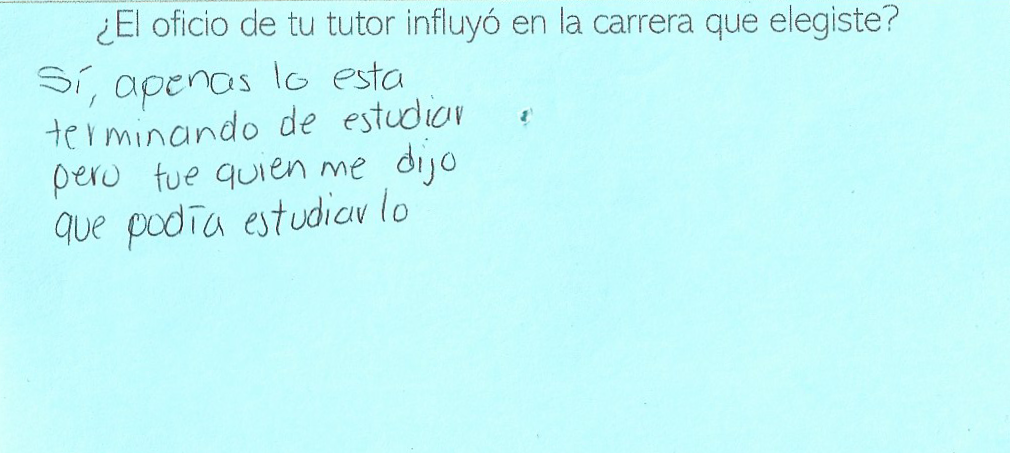 ¿El oficio de tu tutor influyó en la carrera que elegiste?
Sí, apenas lo esta
terminando de estudiar
pero fue quien me dijo
que podía estudiarlo